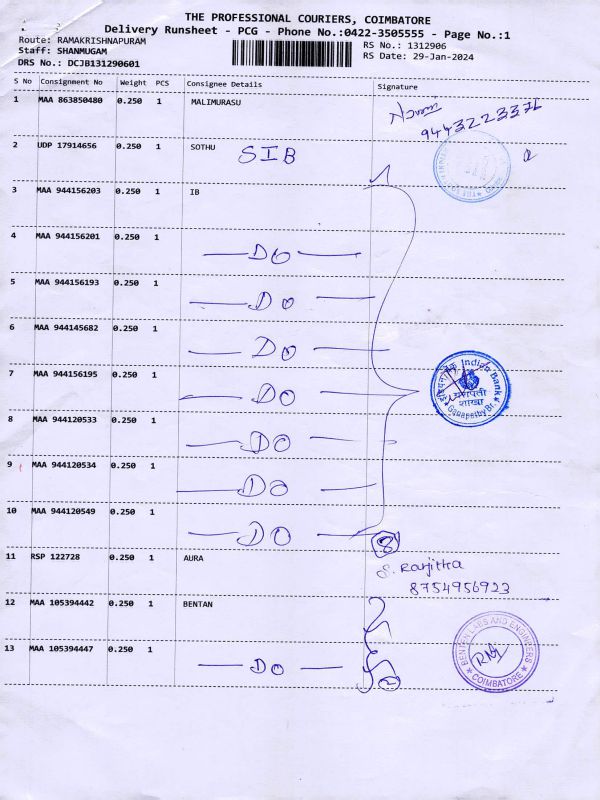 THE PROFESSIONAL COURIERS, COIMBATORE
Delivery Runsheet - PCG - Phone No.:0422-3505555 - Page No.:1
Route: RAMAKRISHNAPURAM
RS No.: 1312906
Staff: SHANMUGAM
RS Date: 29-Jan-2024
DRS No.: DCJB131290601
S No Consignment No Weight PCS Consignee Details Signature
1 MAA 863850480 0.250 1 MALIMURASU
9443223376
2 UDP 17914656 0.250 1 SOTHU SIB
3 MAA 944156203 0.250 1 IB
4 MAA 944156201 0.250 1 DO
5 MAA 944156193 0.250 1 DO
6 MAA 944145682 0.250 1 DO
7 MAA 944156195 0.250 1 DO
इंडियन बैंक Indian Bank
गणपती
शाखा
Ganapathy Br.
8 MAA 944120533 0.250 1 DO
9 MAA 944120534 0.250 1 DO
10 MAA 944120549 0.250 1 DO
8
11 RSP 122728 0.250 1 AURA S. Ranjitha
8754956923
12 MAA 105394442 0.250 1 BENTAN
BENTAN LABS AND ENGINEERS
COIMBATORE
13 MAA 105394447 0.250 1 DO 2